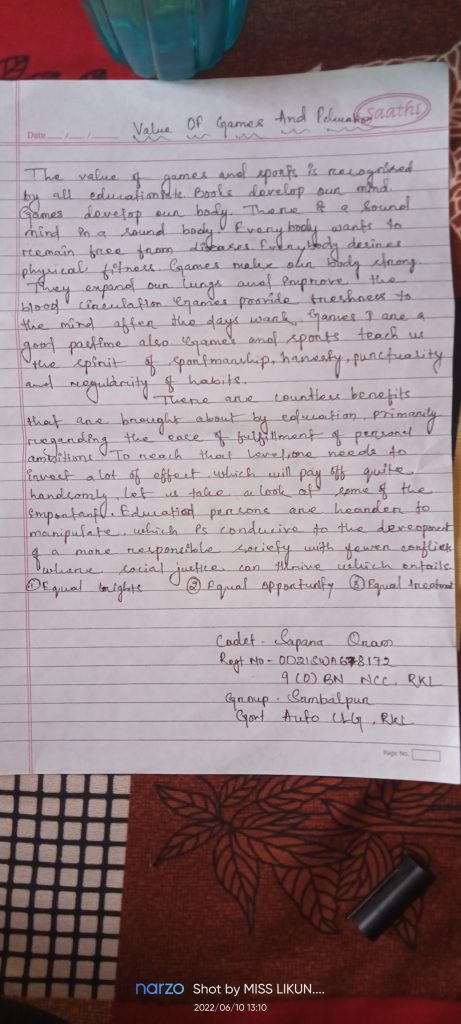 saathi
Date ___/___/___ Value Of Games And Education
The value of games and sports is recognised
by all educationists. Books develop our mind.
Games develop our body. There is a sound
mind in a sound body. Everybody wants to
remain free from diseases. Everybody desires
physical fitness. Games make our body strong.
They expand our lungs and improve the
blood circulation. Games provide freshness to
the mind after the days work. Games are a
good pastime also. Games and sports teach us
the spirit of sportmanship, honesty, punctuality
and regularity of habits.
There are countless benefits
that are brought about by education, primarily
regarding the ease of fulfillment of personal
ambitions. To reach that level, one needs to
invest a lot of effect which will pay off quite
handsomly. let us take a look at some of the
importants. Education persons are hearder to
manipulate, which is conducive to the deveopment
of a more responsible society with fewer conflicts
where social justice can thrive which entails
① Equal rights ② Equal opportunity ③ Equal treatment
Cadet - Sapana Oram
Regt No - OD21SWA678172
9 (O) BN NCC, RKL
Group - Sambalpur
Govt Auto CLG, RKL
Page No.
narzo Shot by MISS LIKUN....
2022/06/10 13:10